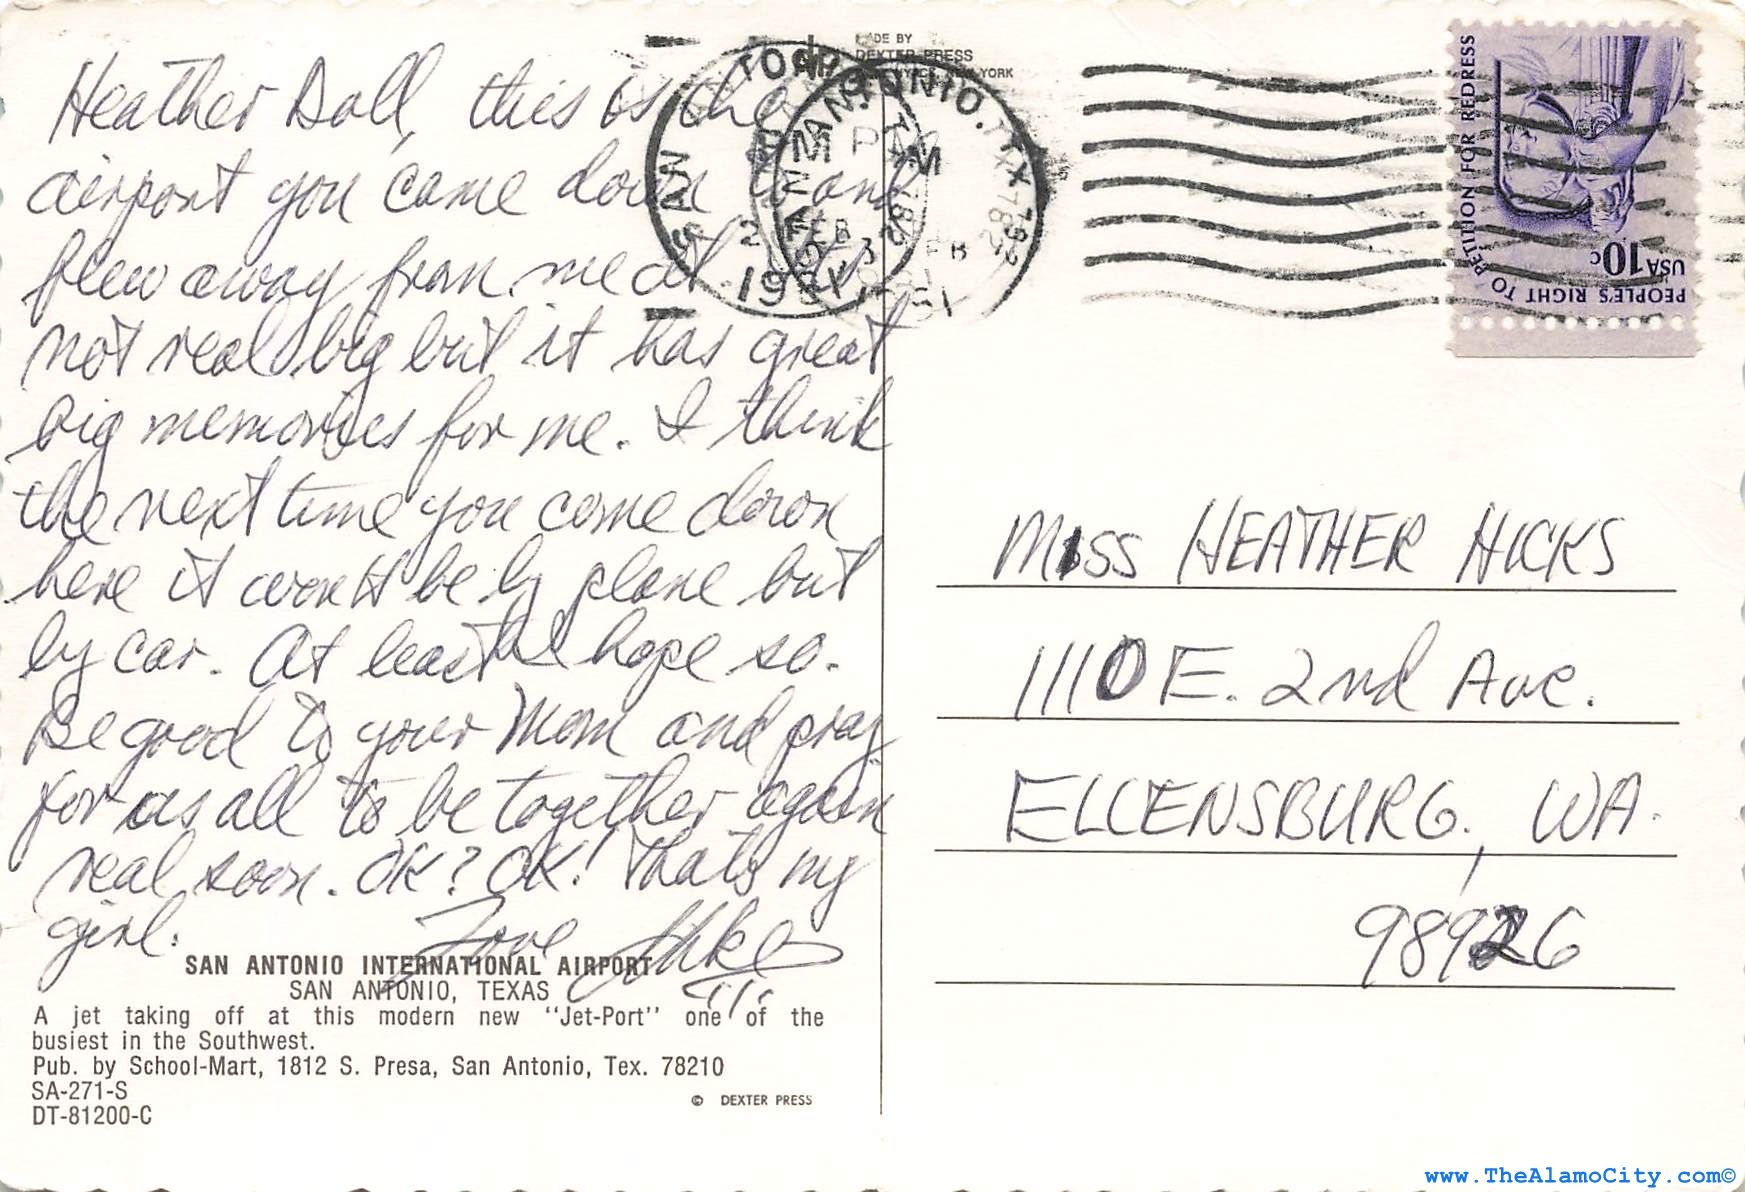 Heather Doll, this is the
airport you came down to and
flew away from me at. It's
not real big but it has great
big memories for me. I think
the next time you come down
here it won't be by plane but
by car. At least I hope so.
Be good to your Mom and pray
for us all to be together again
real soon. OK? OK! That's my
girl.
Love
SAN ANTONIO INTERNATIONAL AIRPORT
SAN ANTONIO, TEXAS
A jet taking off at this modern new "Jet-Port" one of the
busiest in the Southwest.
Pub. by School-Mart, 1812 S. Presa, San Antonio, Tex. 78210
SA-271-S
DT-81200-C
© DEXTER PRESS
MADE BY
DEXTER PRESS
NEW YORK
SAN ANTONIO, TX 782
PM
FEB
PETITION FOR REDRESS
PEOPLE'S RIGHT TO
USA 10c
MISS HEATHER HICKS
1110 E. 2nd Ave.
ELLENSBURG, WA.
98926
www.TheAlamoCity.com©